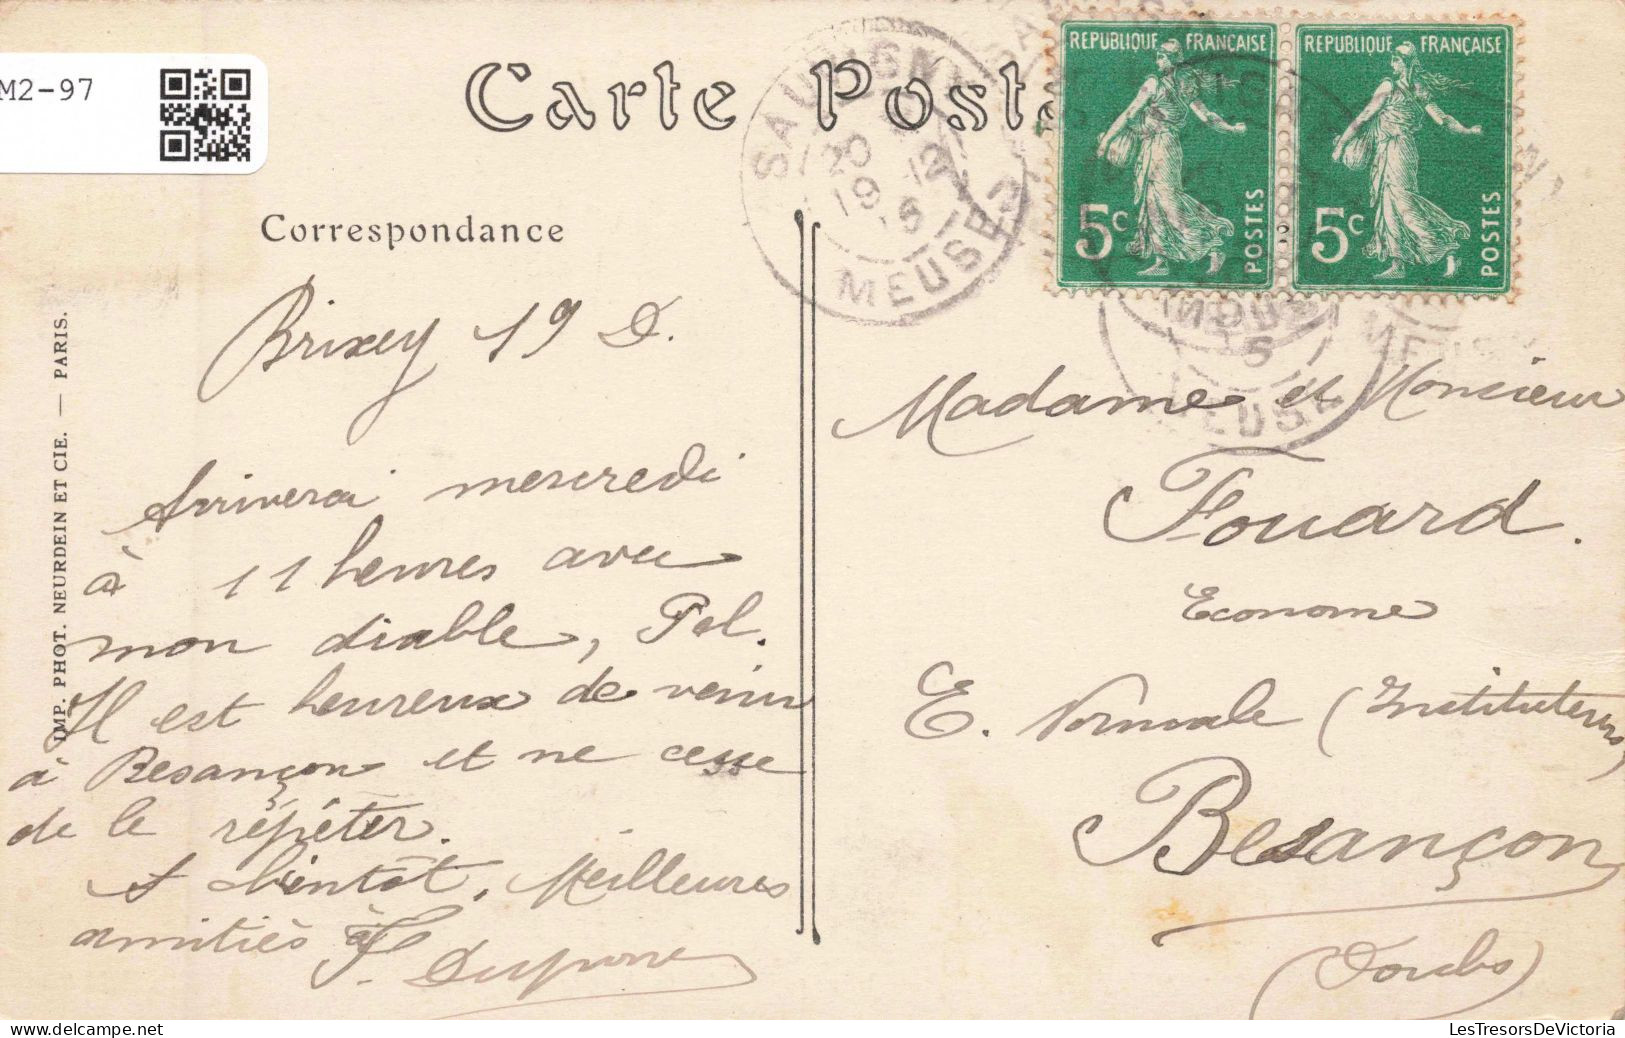 M2-97
Carte Posta
REPUBLIQUE FRANÇAISE
5c
POSTES
REPUBLIQUE FRANÇAISE
5c
POSTES
SAUVIGNY
20 - 12
19 15
MEUSE
MEUSE
Correspondance
IMP. PHOT. NEURDEIN ET CIE. — PARIS.
Brixey 19 D.
Arriverai mercredi
à 11 heures avec
mon diable, Pol.
Il est heureux de venir
à Besançon et ne cesse
de le répéter.
A bientôt, Meilleures
amitiés
Madame et Monsieur
Fouard.
Econome
E. Normale (Instituteurs)
Besançon
(Doubs)
LesTresorsDeVictoria